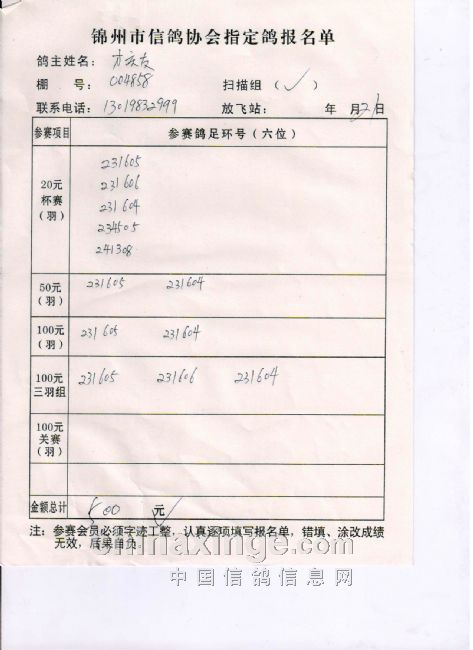 锦州市信鸽协会指定鸽报名单
鸽主姓名：
棚　号：004858　扫描组（✓）
联系电话：13019832999　放飞站：　年　月21日
参赛项目　参赛鸽足环号（六位）
20元
杯赛
（羽）
231605
231606
231604
234505
241308
50元
（羽）
231605　231604
100元
（羽）
231605　231604
100元
三羽组
231605　231606　231604
100元
关赛
（羽）
金额总计　500　元
注：参赛会员必须字迹工整，认真逐项填写报名单，错填、涂改成绩
无效，后果自负
chinaxinge.com
中国信鸽信息网